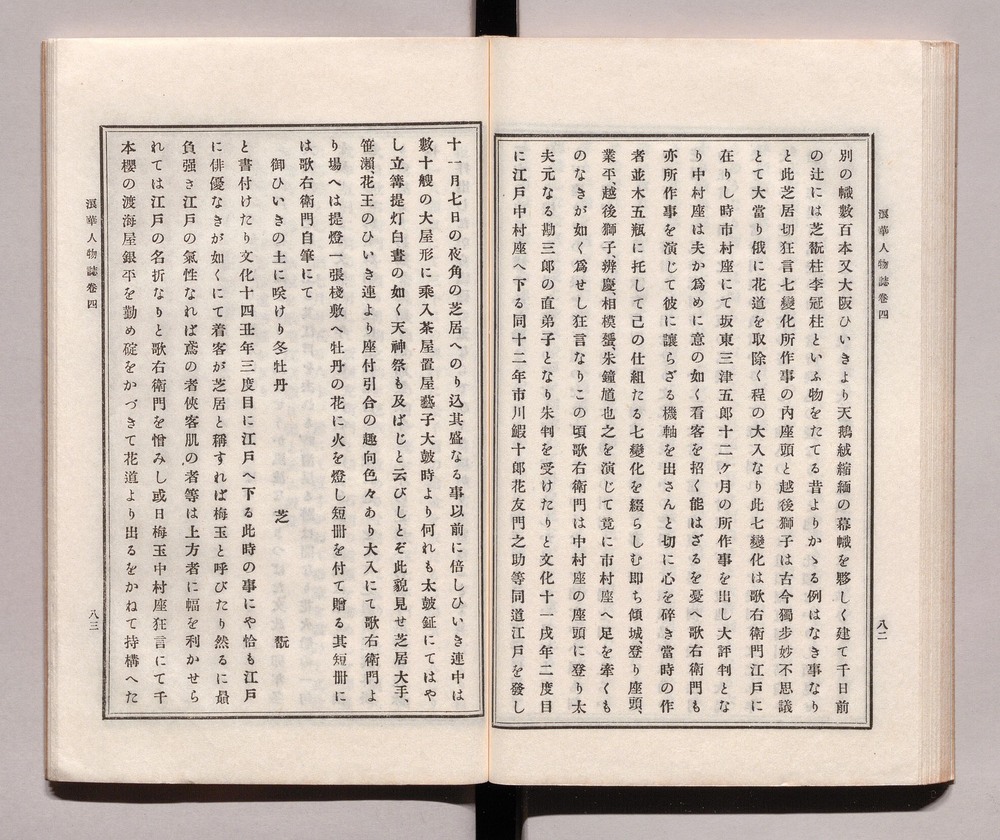 浪華人物誌卷四
八二
別の幟數百本又大阪ひいきより天鵞絨縮緬の幕幟を夥しく建て千日前
の辻には芝翫柱李冠柱といふ物をたてる昔よりかゝる例はなき事なり
と此芝居切狂言七變化所作事の內座頭と越後獅子は古今獨步妙不思議
とて大當り俄に花道を取除く程の大入なり此七變化は歌右衛門江戶に
在りし時市村座にて坂東三津五郎十二ケ月の所作事を出し大評判とな
り中村座は夫か爲めに意の如く看客を招く能はざるを憂へ歌右衛門も
亦所作事を演じて彼に讓らざる機軸を出さんと切に心を碎き當時の作
者並木五瓶に托して己の仕組たる七變化を綴らしむ卽ち傾城、登り座頭、
業平、越後獅子、辨慶、相模蜑、朱鐘馗也之を演じて竟に市村座へ足を牽くも
のなきが如く爲せし狂言なりこの頃歌右衛門は中村座の座頭に登り太
夫元なる勘三郎の直弟子となり朱判を受けたりと文化十一戌年二度目
に江戶中村座へ下る同十二年市川鰕十郎花友門之助等同道江戶を發し
十一月七日の夜角の芝居へのり込其盛なる事以前に倍しひいき連中は
數十艘の大屋形に乘入茶屋置屋藝子大皷時より何れも太皷鉦にてはや
し立籌提灯白晝の如く天神祭も及ばじと云びしとぞ此貌見せ芝居大手、
笹瀨、花王のひいき連より座付引合の趣向色々あり大入にて歌右衛門よ
り場へは提燈一張棧敷へ牡丹の花に火を燈し短冊を付て贈る其短冊に
は歌右衛門自筆にて
御ひいきの土に咲けり冬牡丹　芝　翫
と書付けたり文化十四丑年三度目に江戶へ下る此時の事にや恰も江戶
に俳優なきが如くにて着客が芝居と稱すれば梅玉と呼びたり然るに最
負强き江戶の氣性なれば鳶の者俠客肌の者等は上方者に幅を利かせら
れては江戶の名折なりと歌右衛門を憎みし或日梅玉中村座狂言にて千
本櫻の渡海屋銀平を勤め碇をかづきて花道より出るをかねて持構へた
浪華人物誌卷四
八三